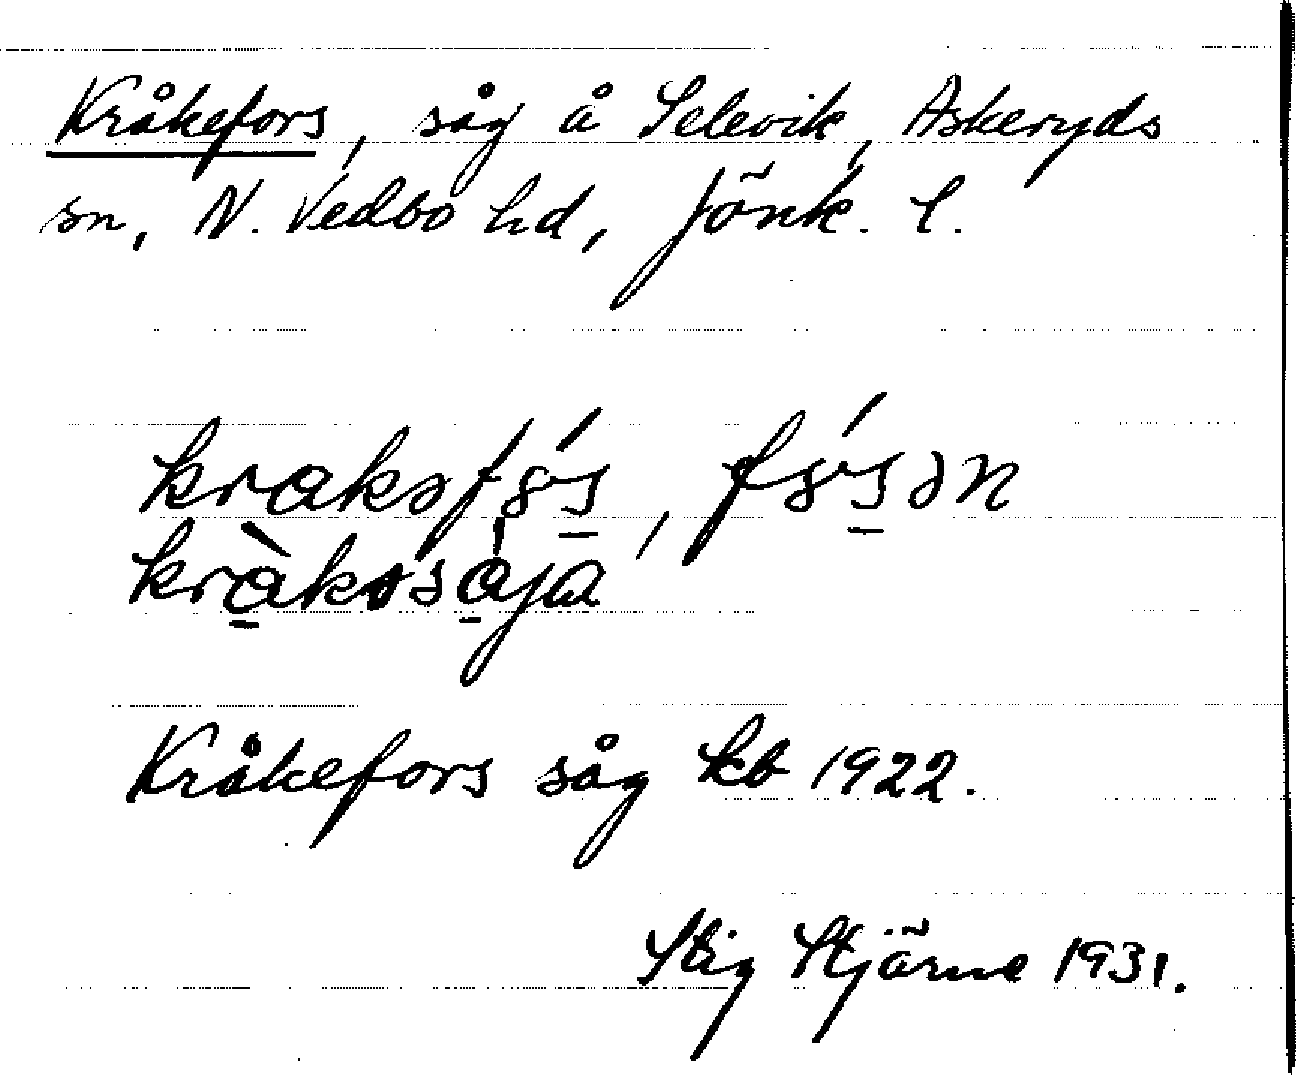 Kråkefors, såg å Selevik, Askeryds
sn, N. Vedbo hd, Jönk. l.
krakəfɤ́s̲, fɤ́s̲ən
krà̲kəsà̲ja
Kråkefors såg kb 1922.
Stig Stjärne 1931.